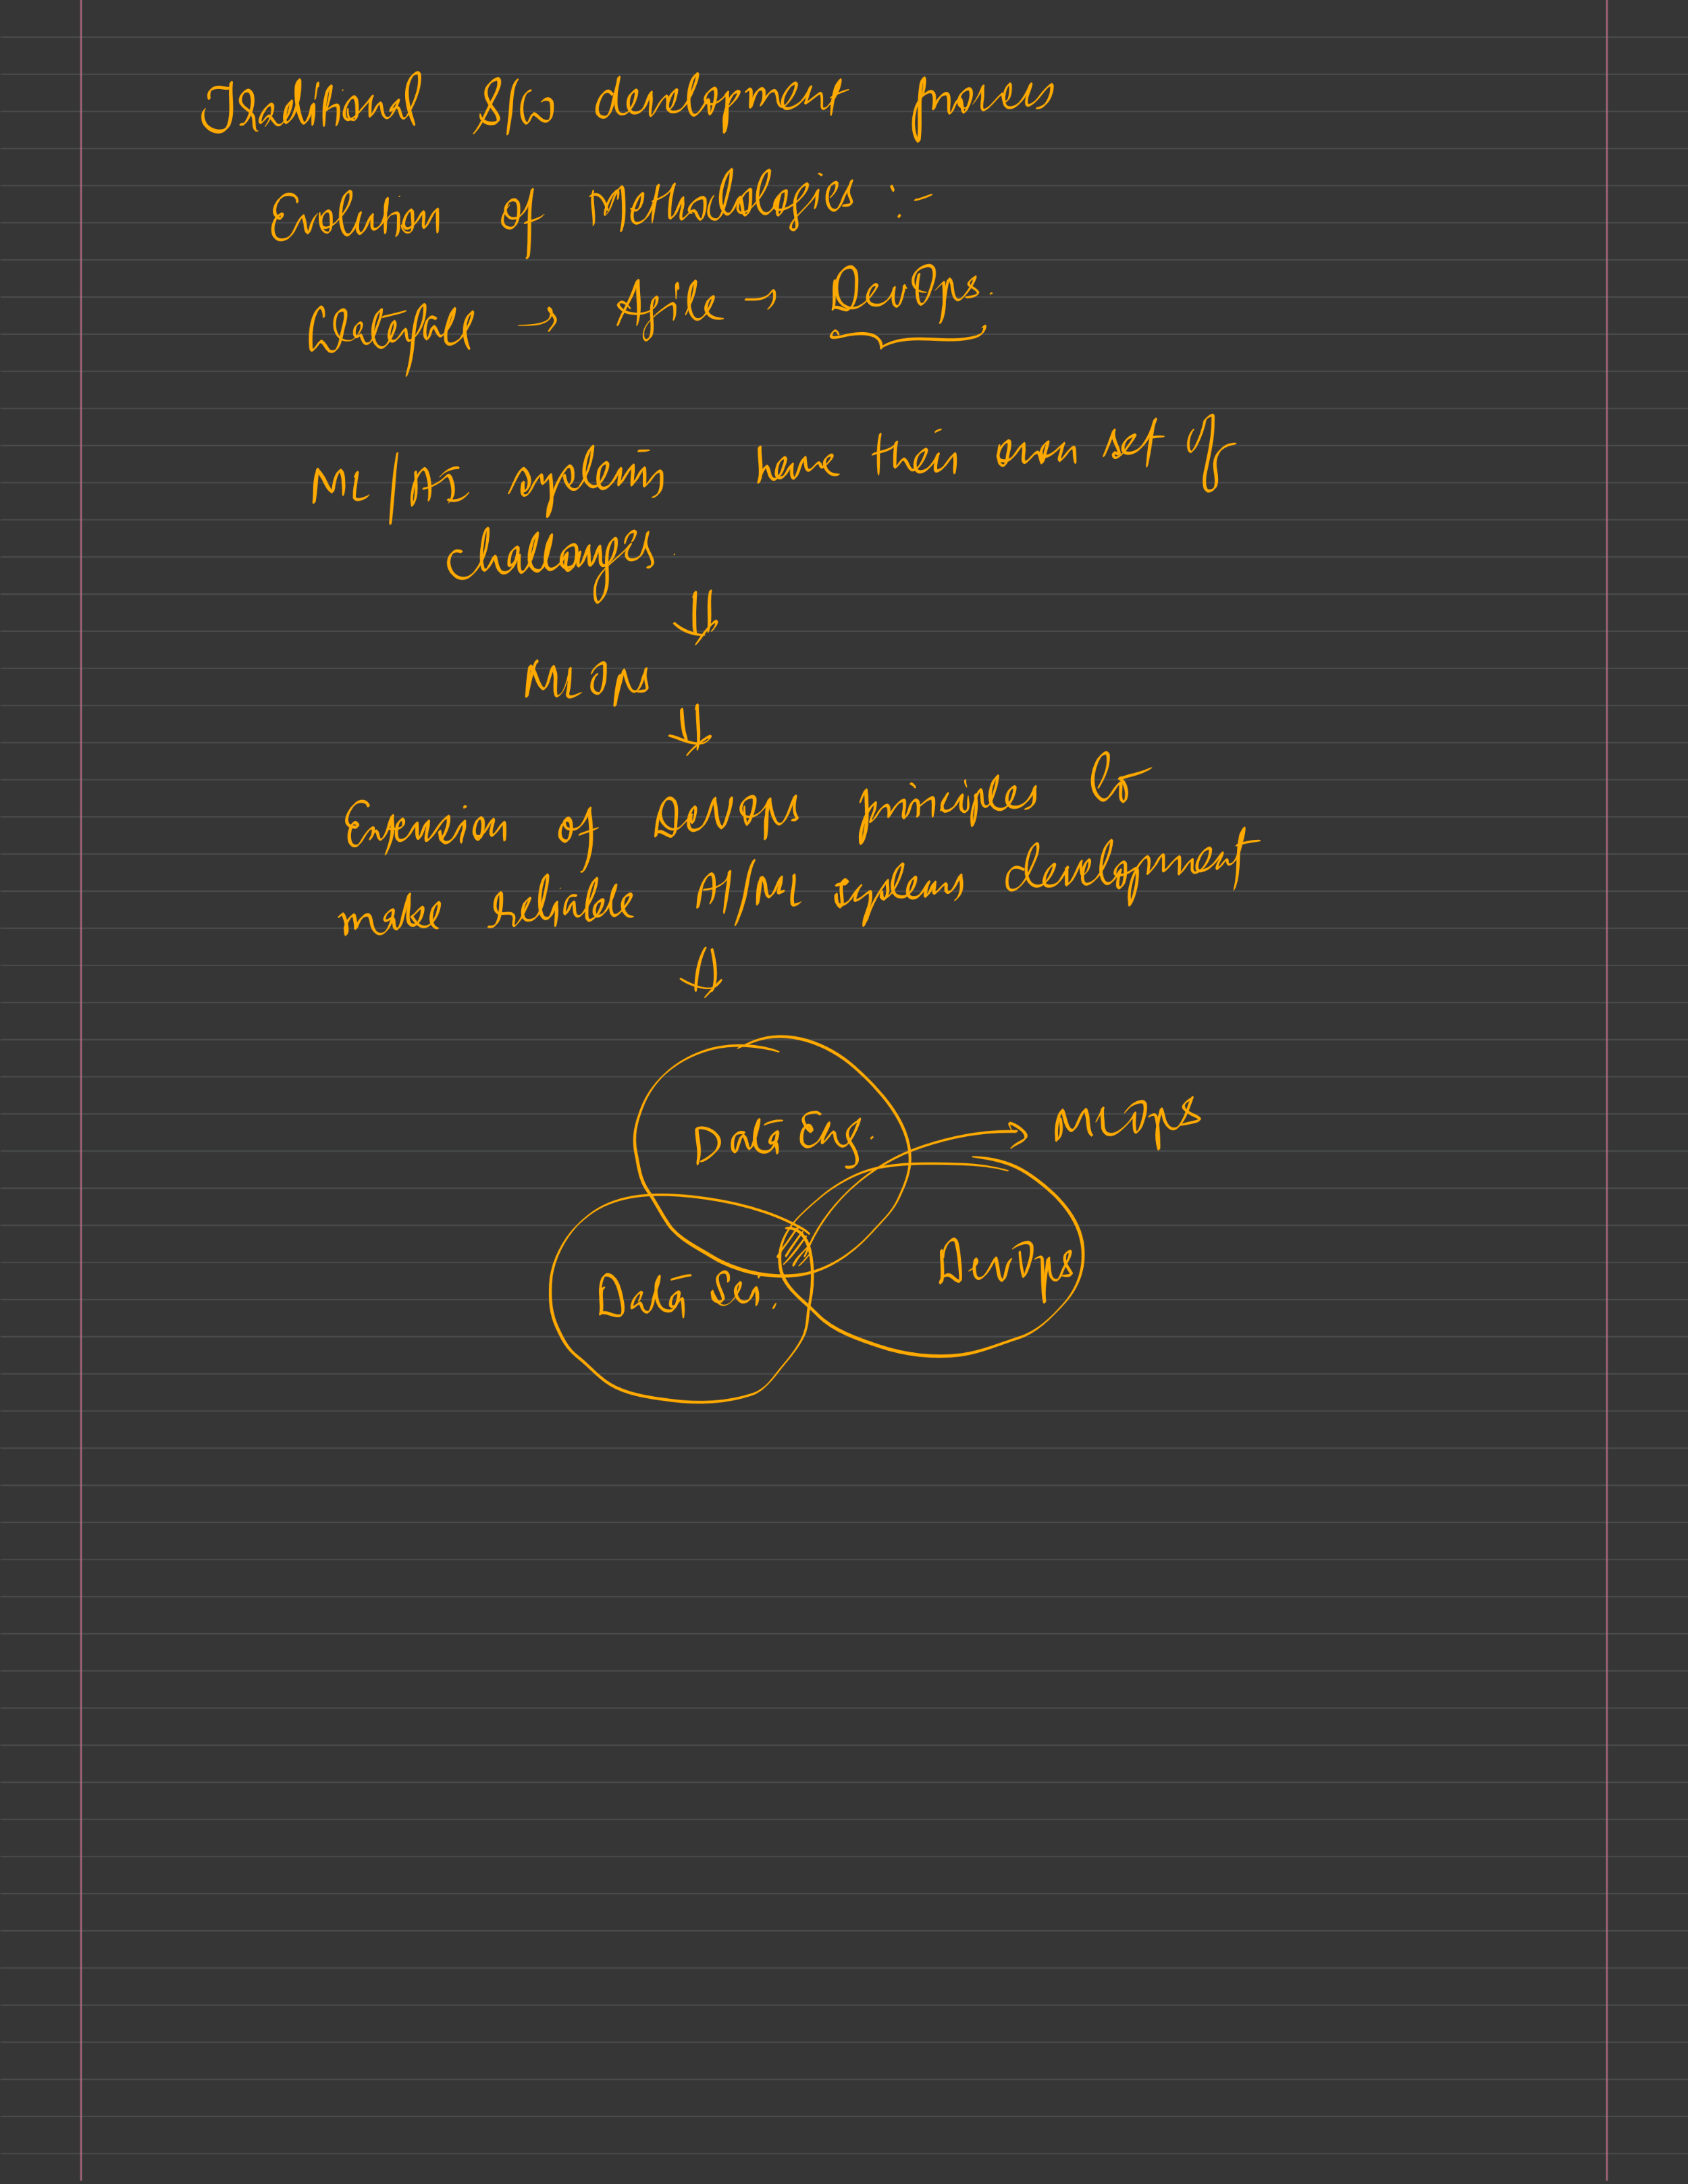 Traditional S/W development process
Evolution of Methodologies :-
Waterfall → Agile → DevOps.
ML/AI systems have their own set of
challenges.
⇓
MLOps
⇓
Expansion of DevOps principles to
make reliable AI/ML systems development
⇓
Data Eng.
MLOps
DevOps
Data Sci.